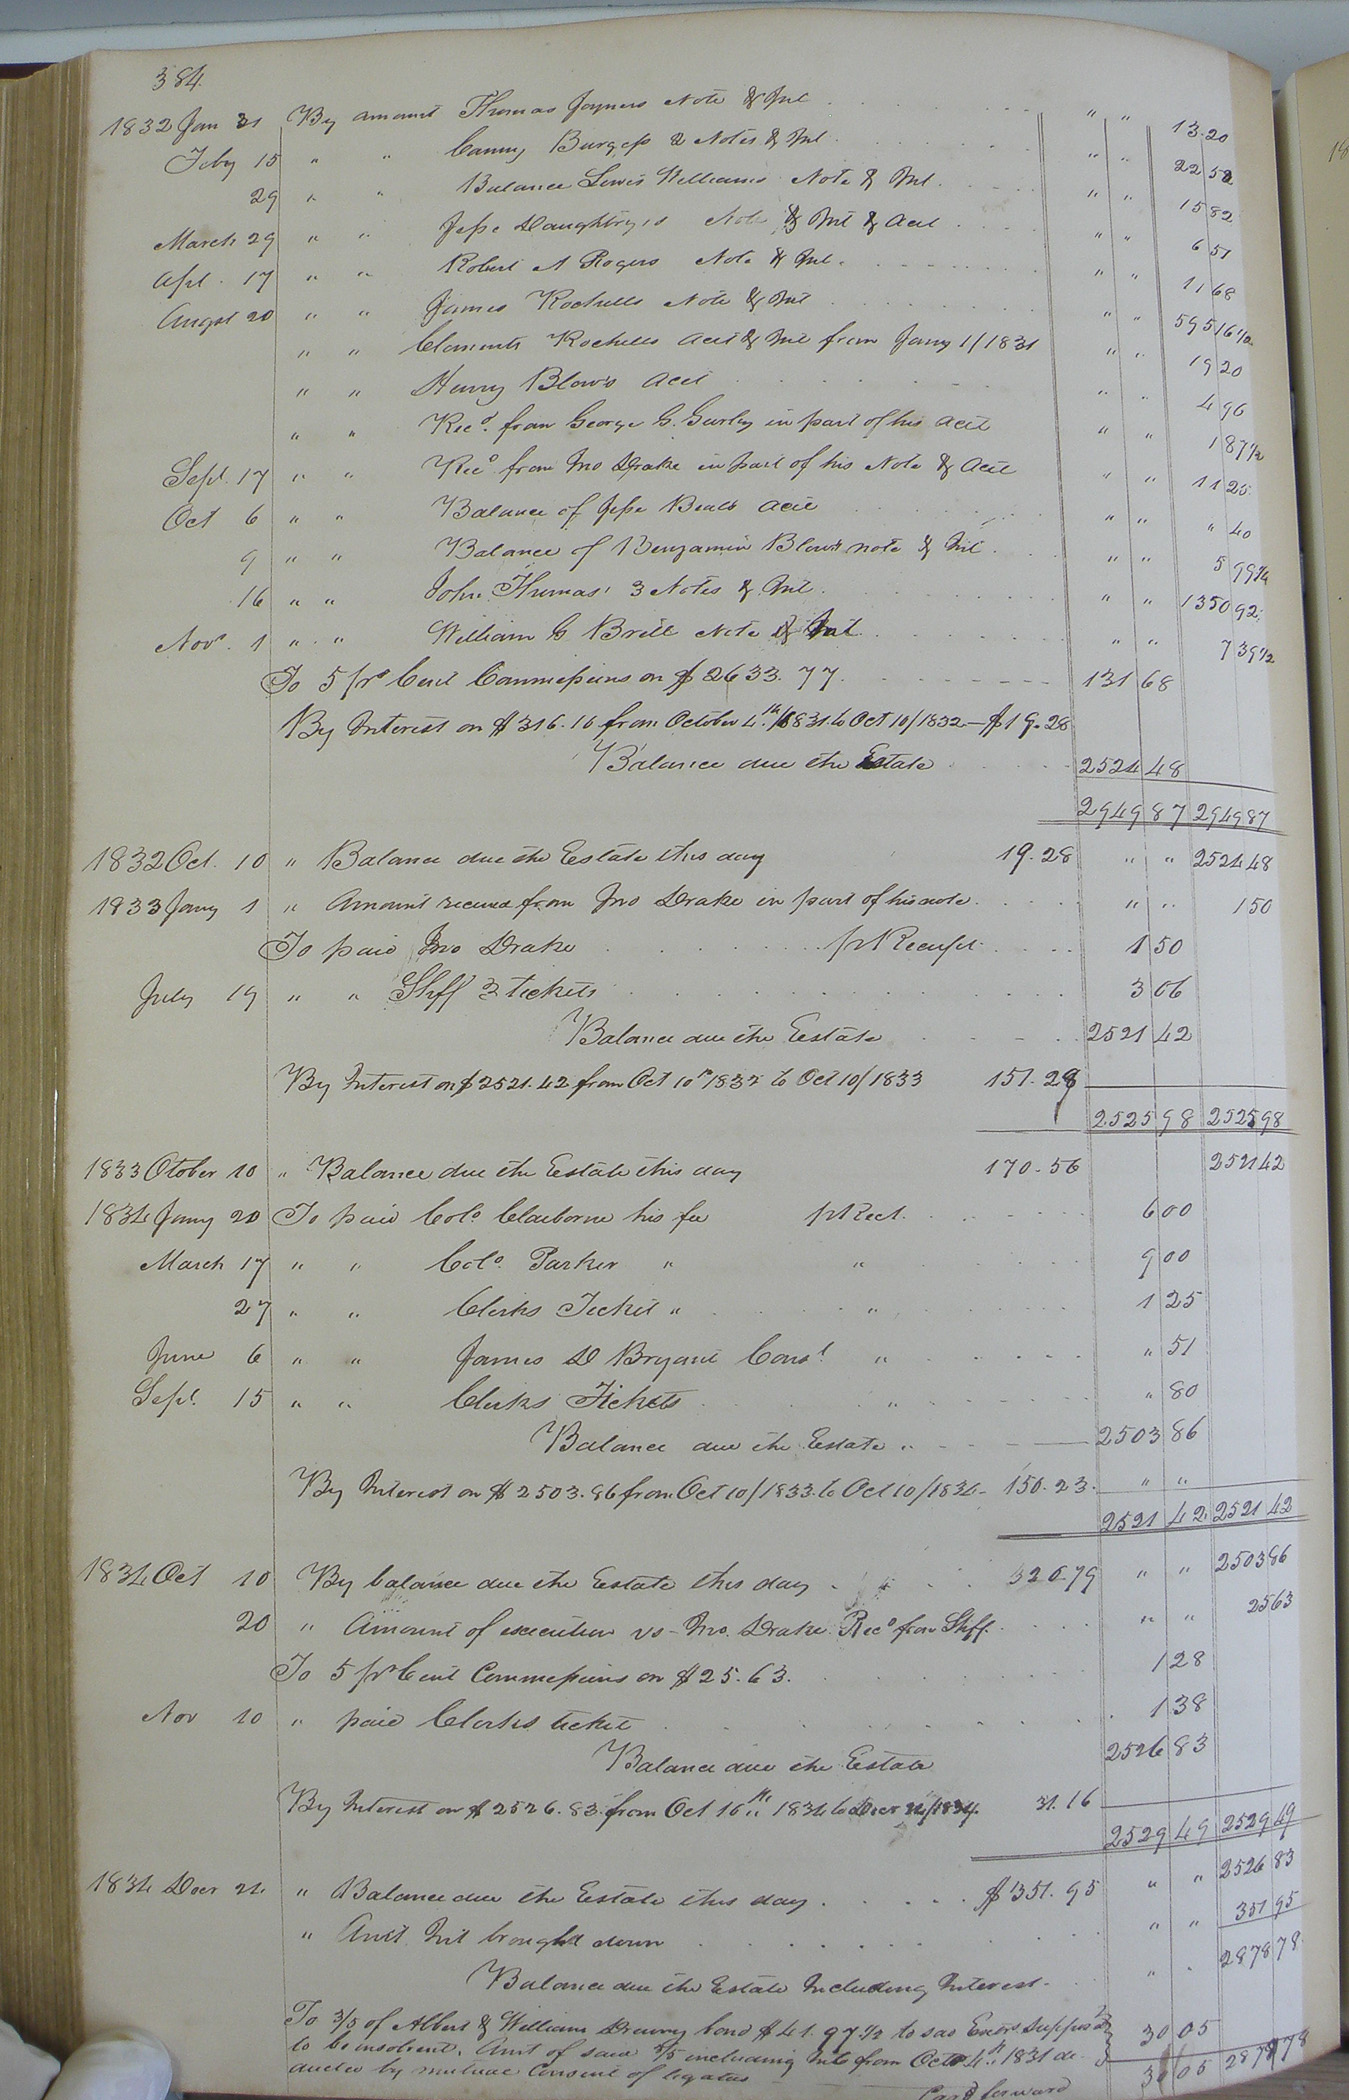 384.
1832 Jan 31 By amount Thomas Joyners Note & Int " " 13.20
Feby 15 " " Canny Burgess 2 Notes & Int " " 22 52
29 " " Balance Lewis Williams Note & Int " " 15 82
March 29 " " Jesse Daughtry's Note & Int & acct " " 6 51
Apl. 17 " " Robert A Rogers Note & Int. " " 11 68
Augst 20 " " James Rochells Note & Int " " 595 16 1/2
" " Clements Rochells acct & Int from Jany 1/1831 " " 19 20
" " Henry Blows acct " " 4 96
" " Recd. from George G. Gurley in part of his acct " " 1 87 1/2
Sept. 17 " " Recd from Jno Drake in part of his Note & acct " " 11 25
Oct 6 " " Balance of Jesse Beals acct " " " 40
9 " " Balance of Benjamin Blows note & Int " " 5 99 1/4
16 " " John Thomas' 3 Notes & Int. " " 1350 92
Novr. 1 " " William G Britt Note & Int " " 7 39 1/2
To 5 pr Cent Commissions on $2633.77. 131 68
By Interest on $316.16 from October 4th./1831. to Oct 10/1832 — $19.28
Balance due the Estate 2524 48
2949 87 2949 87
1832 Oct. 10 " Balance due the Estate this day 19.28 " " 2524 48
1833 Jany 1 " Amount received from Jno Drake in part of his note " " 1 50
To paid Jno Drake pr Receipt 1 50
July 19 " " Shff 3 tickets 3 06
Balance due the Estate 2521 42
By Interest on $2521.42 from Oct 10th 1832 to Oct 10/1833 151.28
2525 98 2525 98
1833 Otober 10 " Balance due the Estate this day 170.56 2521 42
1834 Jany 20 To paid Colo Claiborne his fee pr Rect. 6 00
March 17 " " Colo. Parker " " 9 00
27 " " Clerks Ticket " " 1 25
June 6 " " James D Bryant Const. " " 51
Sept. 15 " " Clerks Tickets " " 80
Balance due the Estate " 2503 86
By Interest on $2503.86 from Oct 10/1833. to Oct 10/1834 - 150.23. " "
2521 42 2521 42
1834 Oct 10 By balance due the Estate this day 320.79 " " 2503 86
20 " Amount of execution vs - Jno. Drake Recd from Shff. " " 25 63
To 5 pr Cent Commissions on $25.63. 1 28
Nov 10 " paid Clerks ticket 1 38
Balance due the Estate 2526 83
By Interest on $2526.83. from Oct 10th 1834 to Decr 24/1834. 31.16
2529 49 2529 49
1834 Decr 24 " Balance due the Estate this day $351.95 " " 2526 83
" Amt. Int brought down " " 351 95
Balance due the Estate Including Interest. " " 2878 78
To 3/5 of Albert & William Drewry bond $41.97 1/2 to sao Exors supposed
to be insolvent. Amt of said 3/5 including Int from Octo 4th. 1831 de- 30 05
ducted by mutual Consent of legatees
Card forward 30 05 2878 78